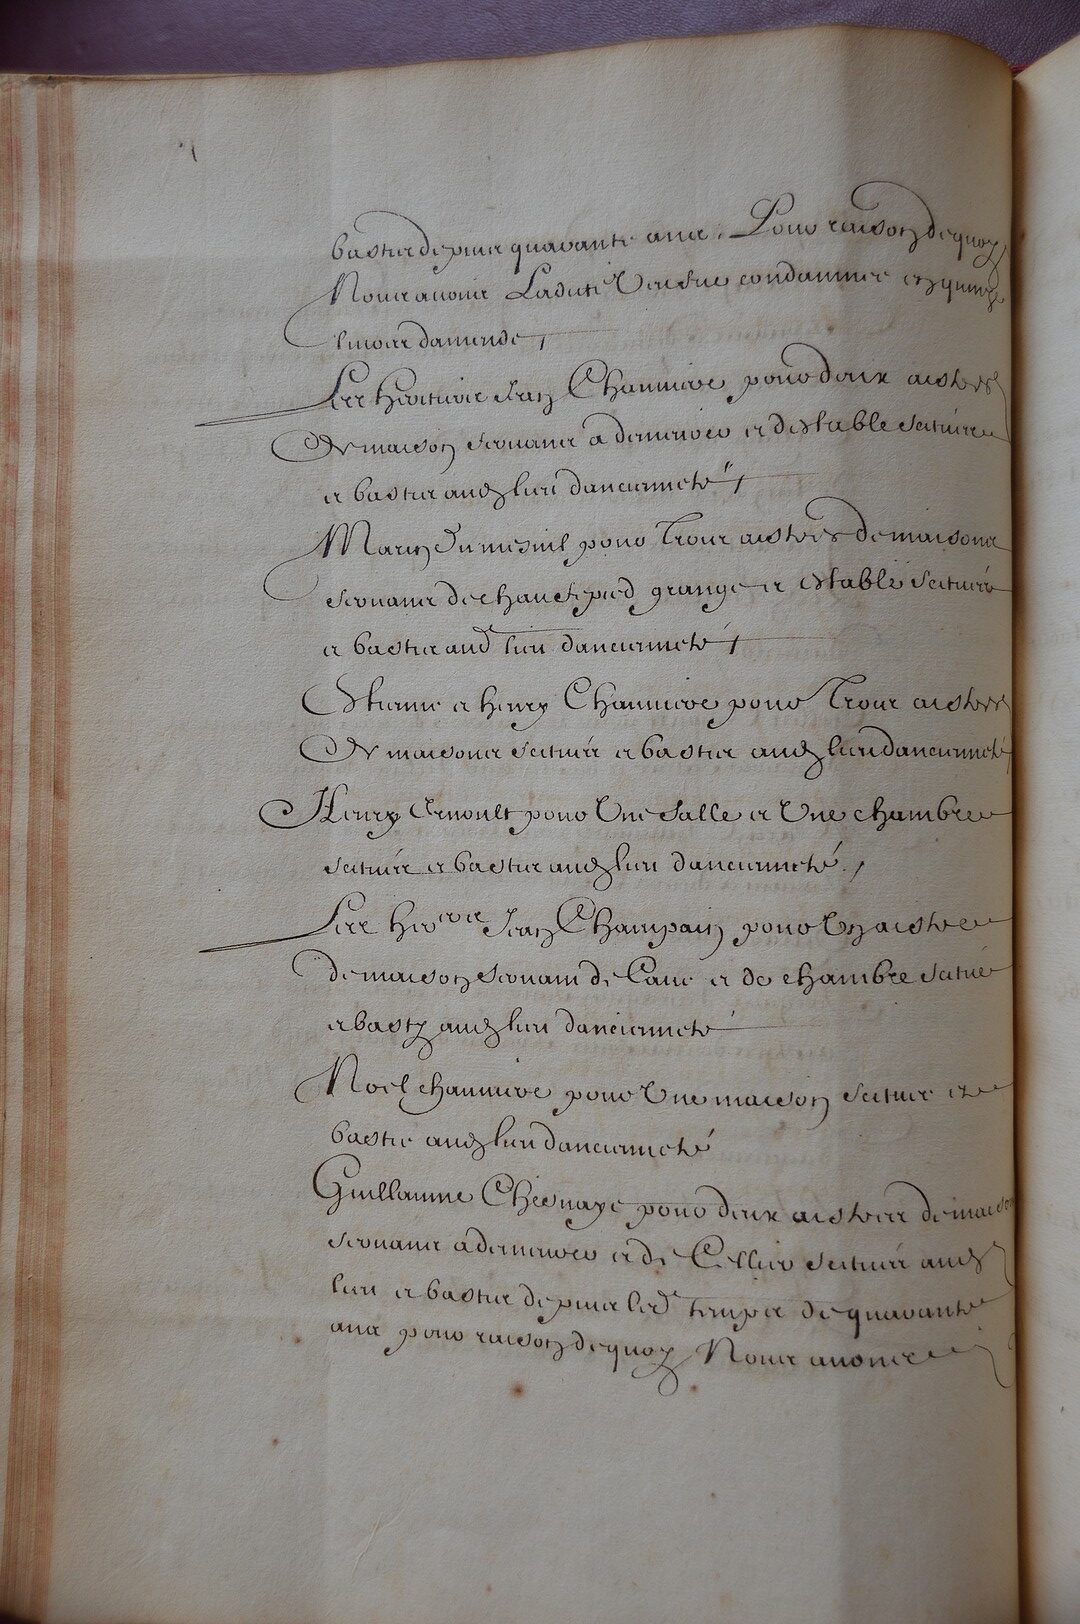 basties depuis quarante ans. Pour raison de quoy
Nous avons Ladite Veufue condamnée en quinze
liures damende,
Les heritiers Jean Chauuiere pour deux aistres
De maison seruans a demeurer et destable scituez
et bastis aud lieu dancienneté,
Marin Dumesnil pour Trois aistres de maisons
seruans de chaufepied grange et estable scituez
et bastis aud lieu dancienneté,
Estienne et henry Chauuiere pour Trois aistres
De maisons scituez et bastis aud lieu dancienneté,
Henry Ernoult pour Vne salle et Vne chambre
scituez et bastis aud lieu dancienneté,
Les herers Jean Champain pour Vn aistre
de maison seruant de Caue et de chambre scitué
et basty aud lieu dancienneté
Noel chauuiere pour Vne maison scituée et
bastie aud lieu dancienneté
Guillaume Chesnaye pour deux aistres de maison
seruans a demeurer et de Cellier scituez aud
lieu et bastis depuis led temps de quarante
ans pour raison de quoy Nous auons